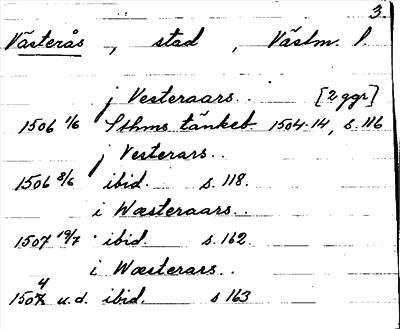 3.
Västerås, stad, Västm. l.
j Vesteraars.. [2 ggr]
1506 1/6 Sthms tänkeb. 1504-14, s. 116
j Vesterars..
1506 8/6 ibid. s. 118.
i Wæsteraars..
1507 19/7 ibid. s. 162.
i Wæsterars..
1507 u.d. ibid. s 163